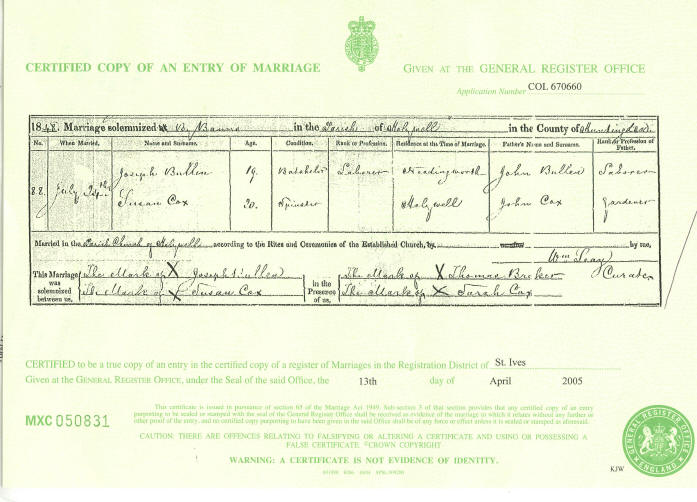 CERTIFIED COPY OF AN ENTRY OF MARRIAGE
GIVEN AT THE GENERAL REGISTER OFFICE
Application Number COL 670660
1848. Marriage solemnized in the Parish of Holywell in the County of Huntingdon
No. When Married. Name and Surname. Age. Condition. Rank or Profession. Residence at the Time of Marriage. Father's Name and Surname. Rank or Profession of Father.
88. July 24th Joseph Bullen 19. Batchelor Laborer Needingworth John Bullen Laborer
Susan Cox 20. Spinster Holywell John Cox Gardener
Married in the Parish Church of Holywell according to the Rites and Ceremonies of the Established Church, by by me,
Wm
Curate
This Marriage was solemnized between us, The Mark of X Joseph Bullen in the Presence of us, The Mark of X Thomas
The Mark of X Susan Cox The Mark of X Sarah Cox
CERTIFIED to be a true copy of an entry in the certified copy of a register of Marriages in the Registration District of St. Ives
Given at the GENERAL REGISTER OFFICE, under the Seal of the said Office, the 13th day of April 2005
MXC 050831
This certificate is issued in pursuance of section 65 of the Marriage Act 1949. Sub-section 3 of that section provides that any certified copy of an entry
purporting to be sealed or stamped with the seal of the General Register Office shall be received as evidence of the marriage to which it relates without any further or
other proof of the entry, and no certified copy purporting to have been given in the said Office shall be of any force or effect unless it is sealed or stamped as aforesaid.
CAUTION: THERE ARE OFFENCES RELATING TO FALSIFYING OR ALTERING A CERTIFICATE AND USING OR POSSESSING A
FALSE CERTIFICATE. ©CROWN COPYRIGHT
WARNING: A CERTIFICATE IS NOT EVIDENCE OF IDENTITY.
GENERAL REGISTER OFFICE
ENGLAND
KJW